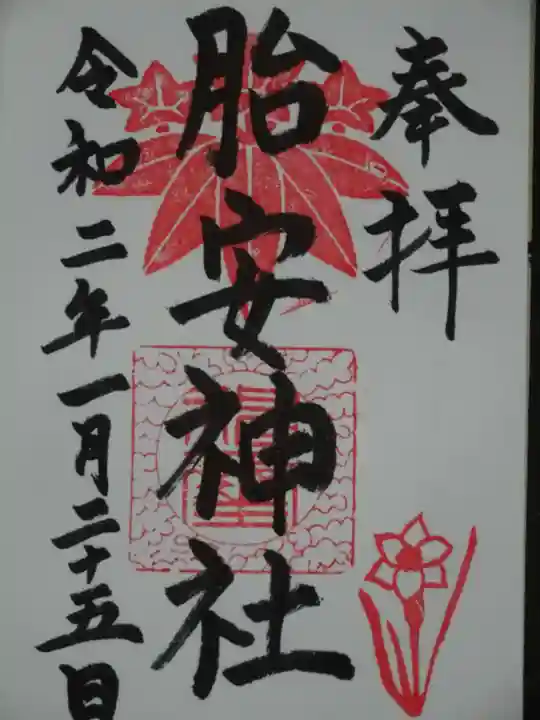 奉拝
胎安神社
令和二年一月二十五日